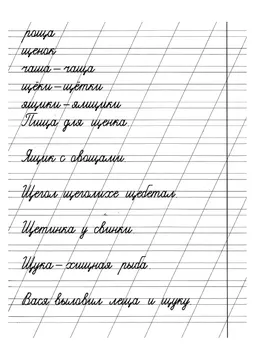 роща
щенок
чаша – чаща
щёки – щётки
ящики – ямщики
Пища для щенка.
Ящик с овощами.
Щегол щеголихе щебетал.
Щетинка у свинки
Щука – хищная рыба.
Вася выловил леща и щуку.